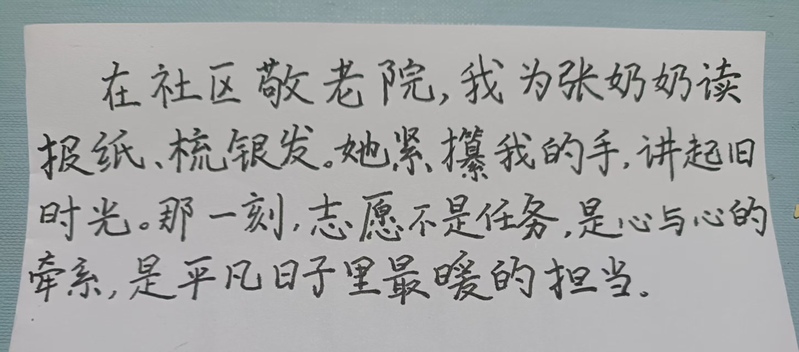 在社区敬老院,我为张奶奶读
报纸、梳银发。她紧攥我的手,讲起旧
时光。那一刻,志愿不是任务,是心与心的
牵系,是平凡日子里最暖的担当。